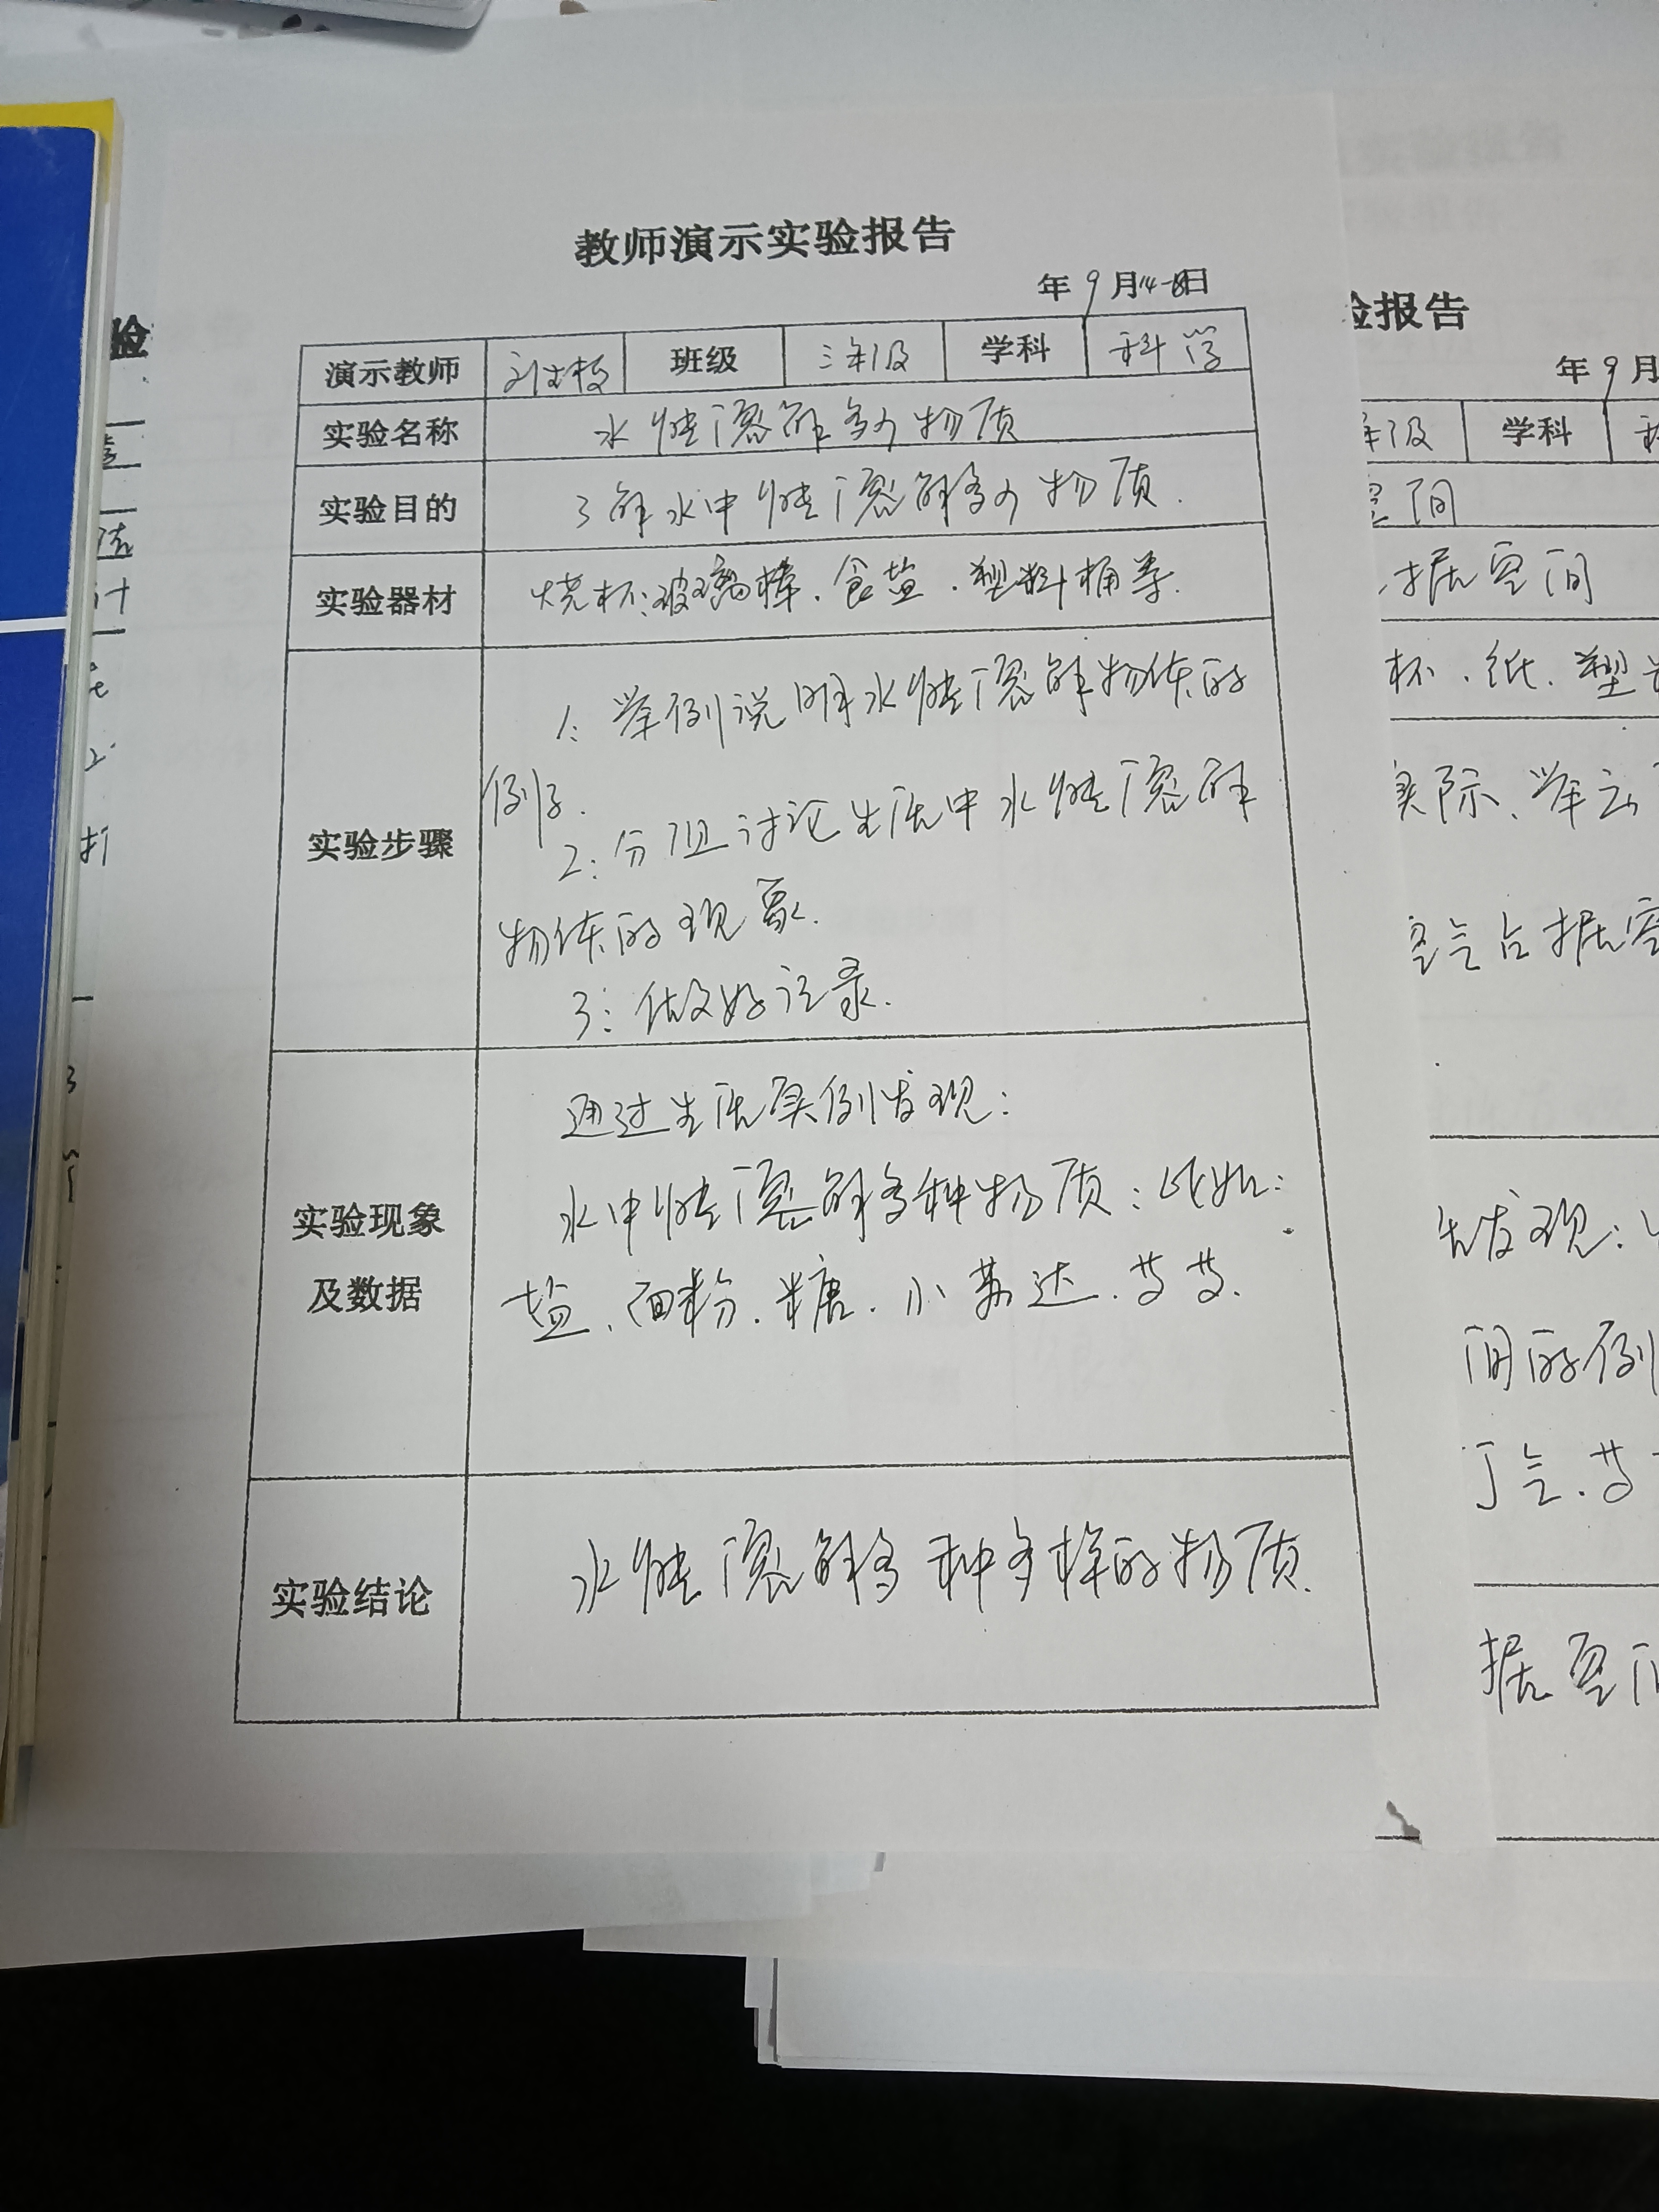 教师演示实验报告
年9月14-18日
演示教师 班级 三年级 学科 科学
实验名称 水能溶解多少物质
实验目的 了解水中能溶解多少物质.
实验器材 烧杯、玻璃棒、食盐、塑料桶等.
实验步骤
1: 举例说明水能溶解物体的
例子.
2: 分组讨论生活中水能溶解
物体的现象.
3: 做好记录.
实验现象
及数据
通过生活实例发现:
水中能溶解多种物质: 比如:
盐、面粉、糖、小苏达、等等.
实验结论
水能溶解多种多样的物质.
验
验报告
年9月
年级 学科
空间
据空间
杯、纸、塑
实际、举
空气占据空
发现:
间的例
气、等
据空间